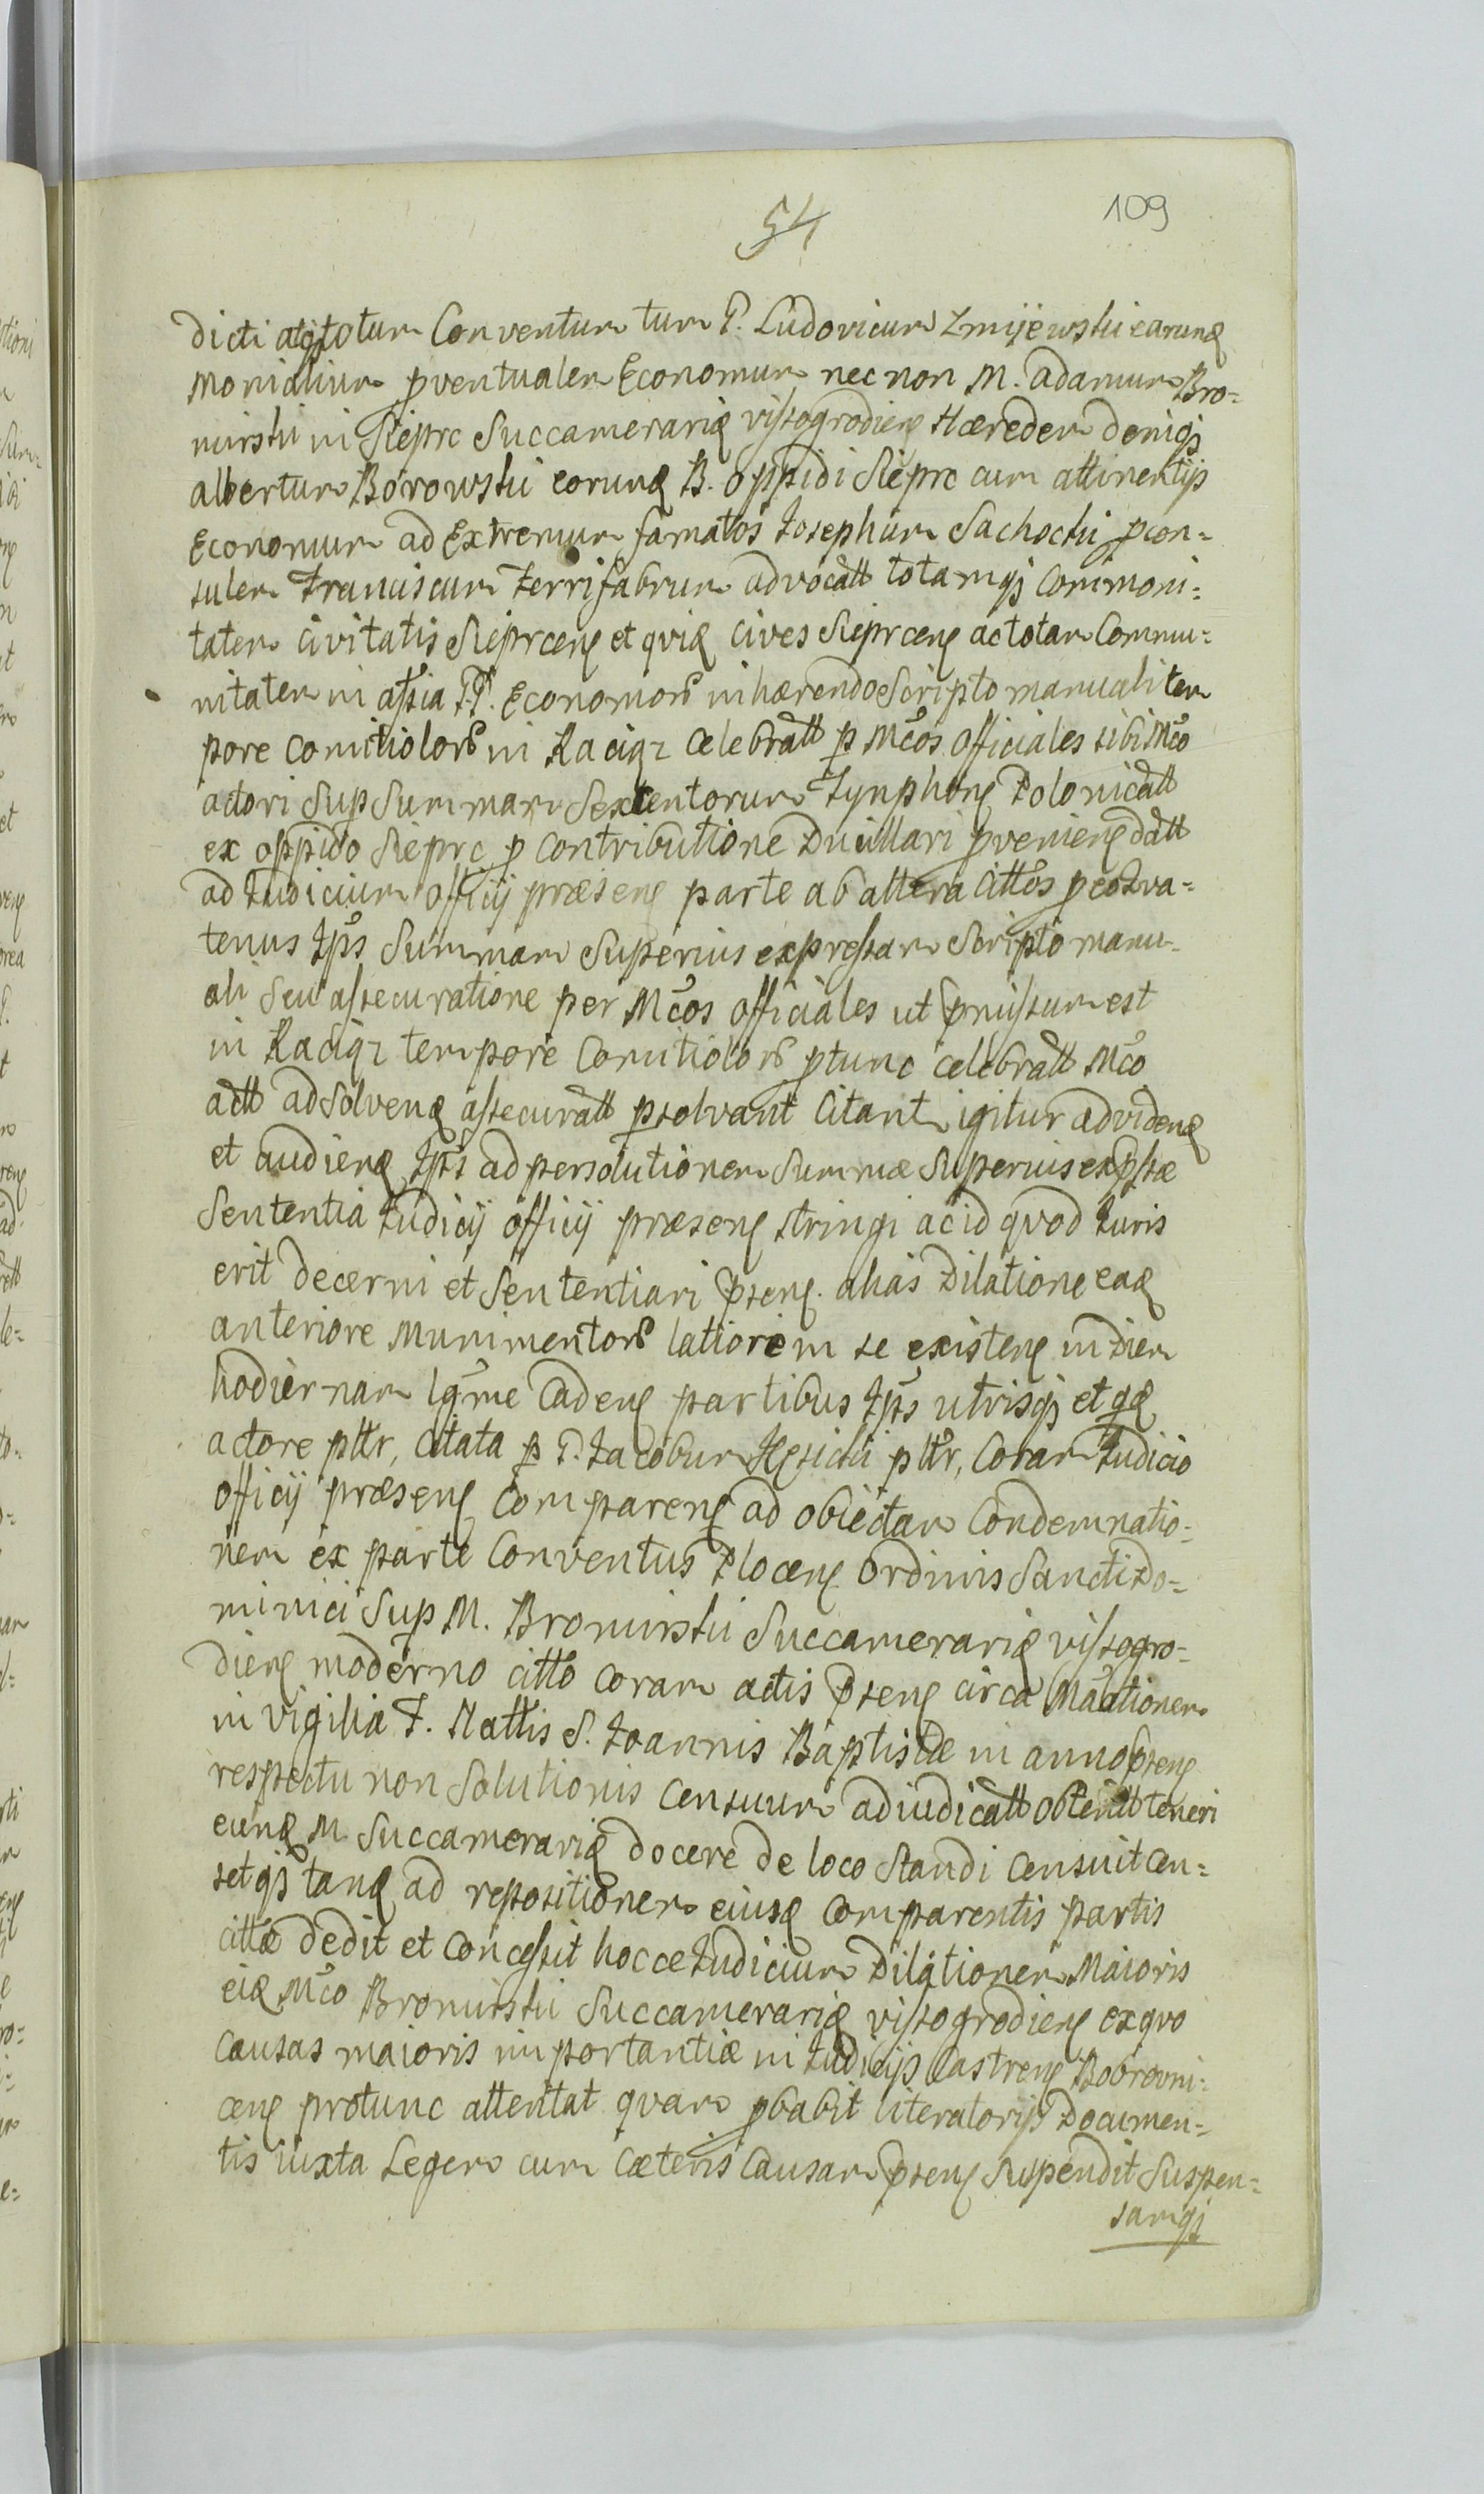 54
109
dicti atqꝫ totum Conventum tum P. Ludovicum Zmijewski earunꝗ
Monialium ꝓventualem Economum nec non M. Adamum Bro=
mirski in Sieprc Succamerariꝗ vissogrodienꝭ Hæredem deniqꝫ
albertum Borowski eorunꝗ B. oppidi Sieprc cum attinentijs
Economum ad Extremum famatos Josephum Sachocki ꝓcon=
sulem Franciscum Ferrifabrum advocatt totamqꝫ Commoni=
tatem Civitatis Sieprcenꝭ et qviꝗ Cives Sieprcenꝭ ac totam Commu=
nitatem in assia P.P. Economorꝭ inhærendo Scripto manuali tem
pore Comitiolorꝭ in Raciąz Celebratt ꝑ Mcos officiales sibi Mco
actori Sup Summam Sexcentorum Tynphonꝭ Polonicatt
ex oppido Sieprc ꝓ Contributione Ducillari ꝓvenienꝭ datt
ad Iudicium officij præsenꝭ parte ab altera Cittos ꝓ eo Qva=
tenus Ipsi Summam Superius expressam Scripto manu=
ali Seu assecuratione per Mcos officiales ut p̄missum est
in Raciąz tempore Comitiolorꝭ ꝓtunc celebratt Mco
actt ad Solvenꝗ assecuratt ꝑsolvant Citant igitur ad videnꝗ
et audienꝗ Ipsis ad persolutionem Summæ Superius expssæ
Sententia Iudicij officij præsenꝭ stringi ac id quod Iuris
erit decerni et Sententiari p̄senꝭ. alias Dilatione eaꝗ
anteriore Munimentorꝭ latiorem se existenꝭ in Diem
hodiernam lgme Cadenꝭ partibus Ipsis utrisqꝫ et qꝗ
actore pttr, Citata ꝑ P. Iacobum Hesicki pttr, Coram Iudicio
officij præsenꝭ Comparenꝭ ad obiectam Condemnatio=
nem ex parte Conventus Plocenꝭ Ordinis Sancti Do=
minici Sup M. Bromirski Succamerariꝗ vissogro=
dienꝭ moderno citto Coram actis p̄senꝭ circa Mactionem
in vigilia F. Nattis S. Ioannis Baptistæ in anno p̄senꝭ
respectu non Solutionis Censuum adiudicatt obtentt teneri
eunꝗ M. Succamerariꝗ docere de loco Standi Censuit Cen=
setqꝫ tanꝗ ad repositionem eiusꝗ Comparentis partis
cittæ dedit et Concessit hocce Iudicium Dilationem Maioris
eiꝗ Mco Bromirski Succamerariꝗ vissogrodienꝭ ex qvo
Causas maioris importantiæ in Iudicijs Castrenꝭ Bobrovni=
cenꝭ protunc attentat qvam ꝓbabit literatorijs Documen=
tis iuxta Legem cum Cæteris Causam p̄senꝭ Suspendit Suspen=
samqꝫ